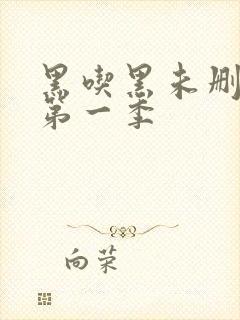 黑喫黑未删
第一季
向荣